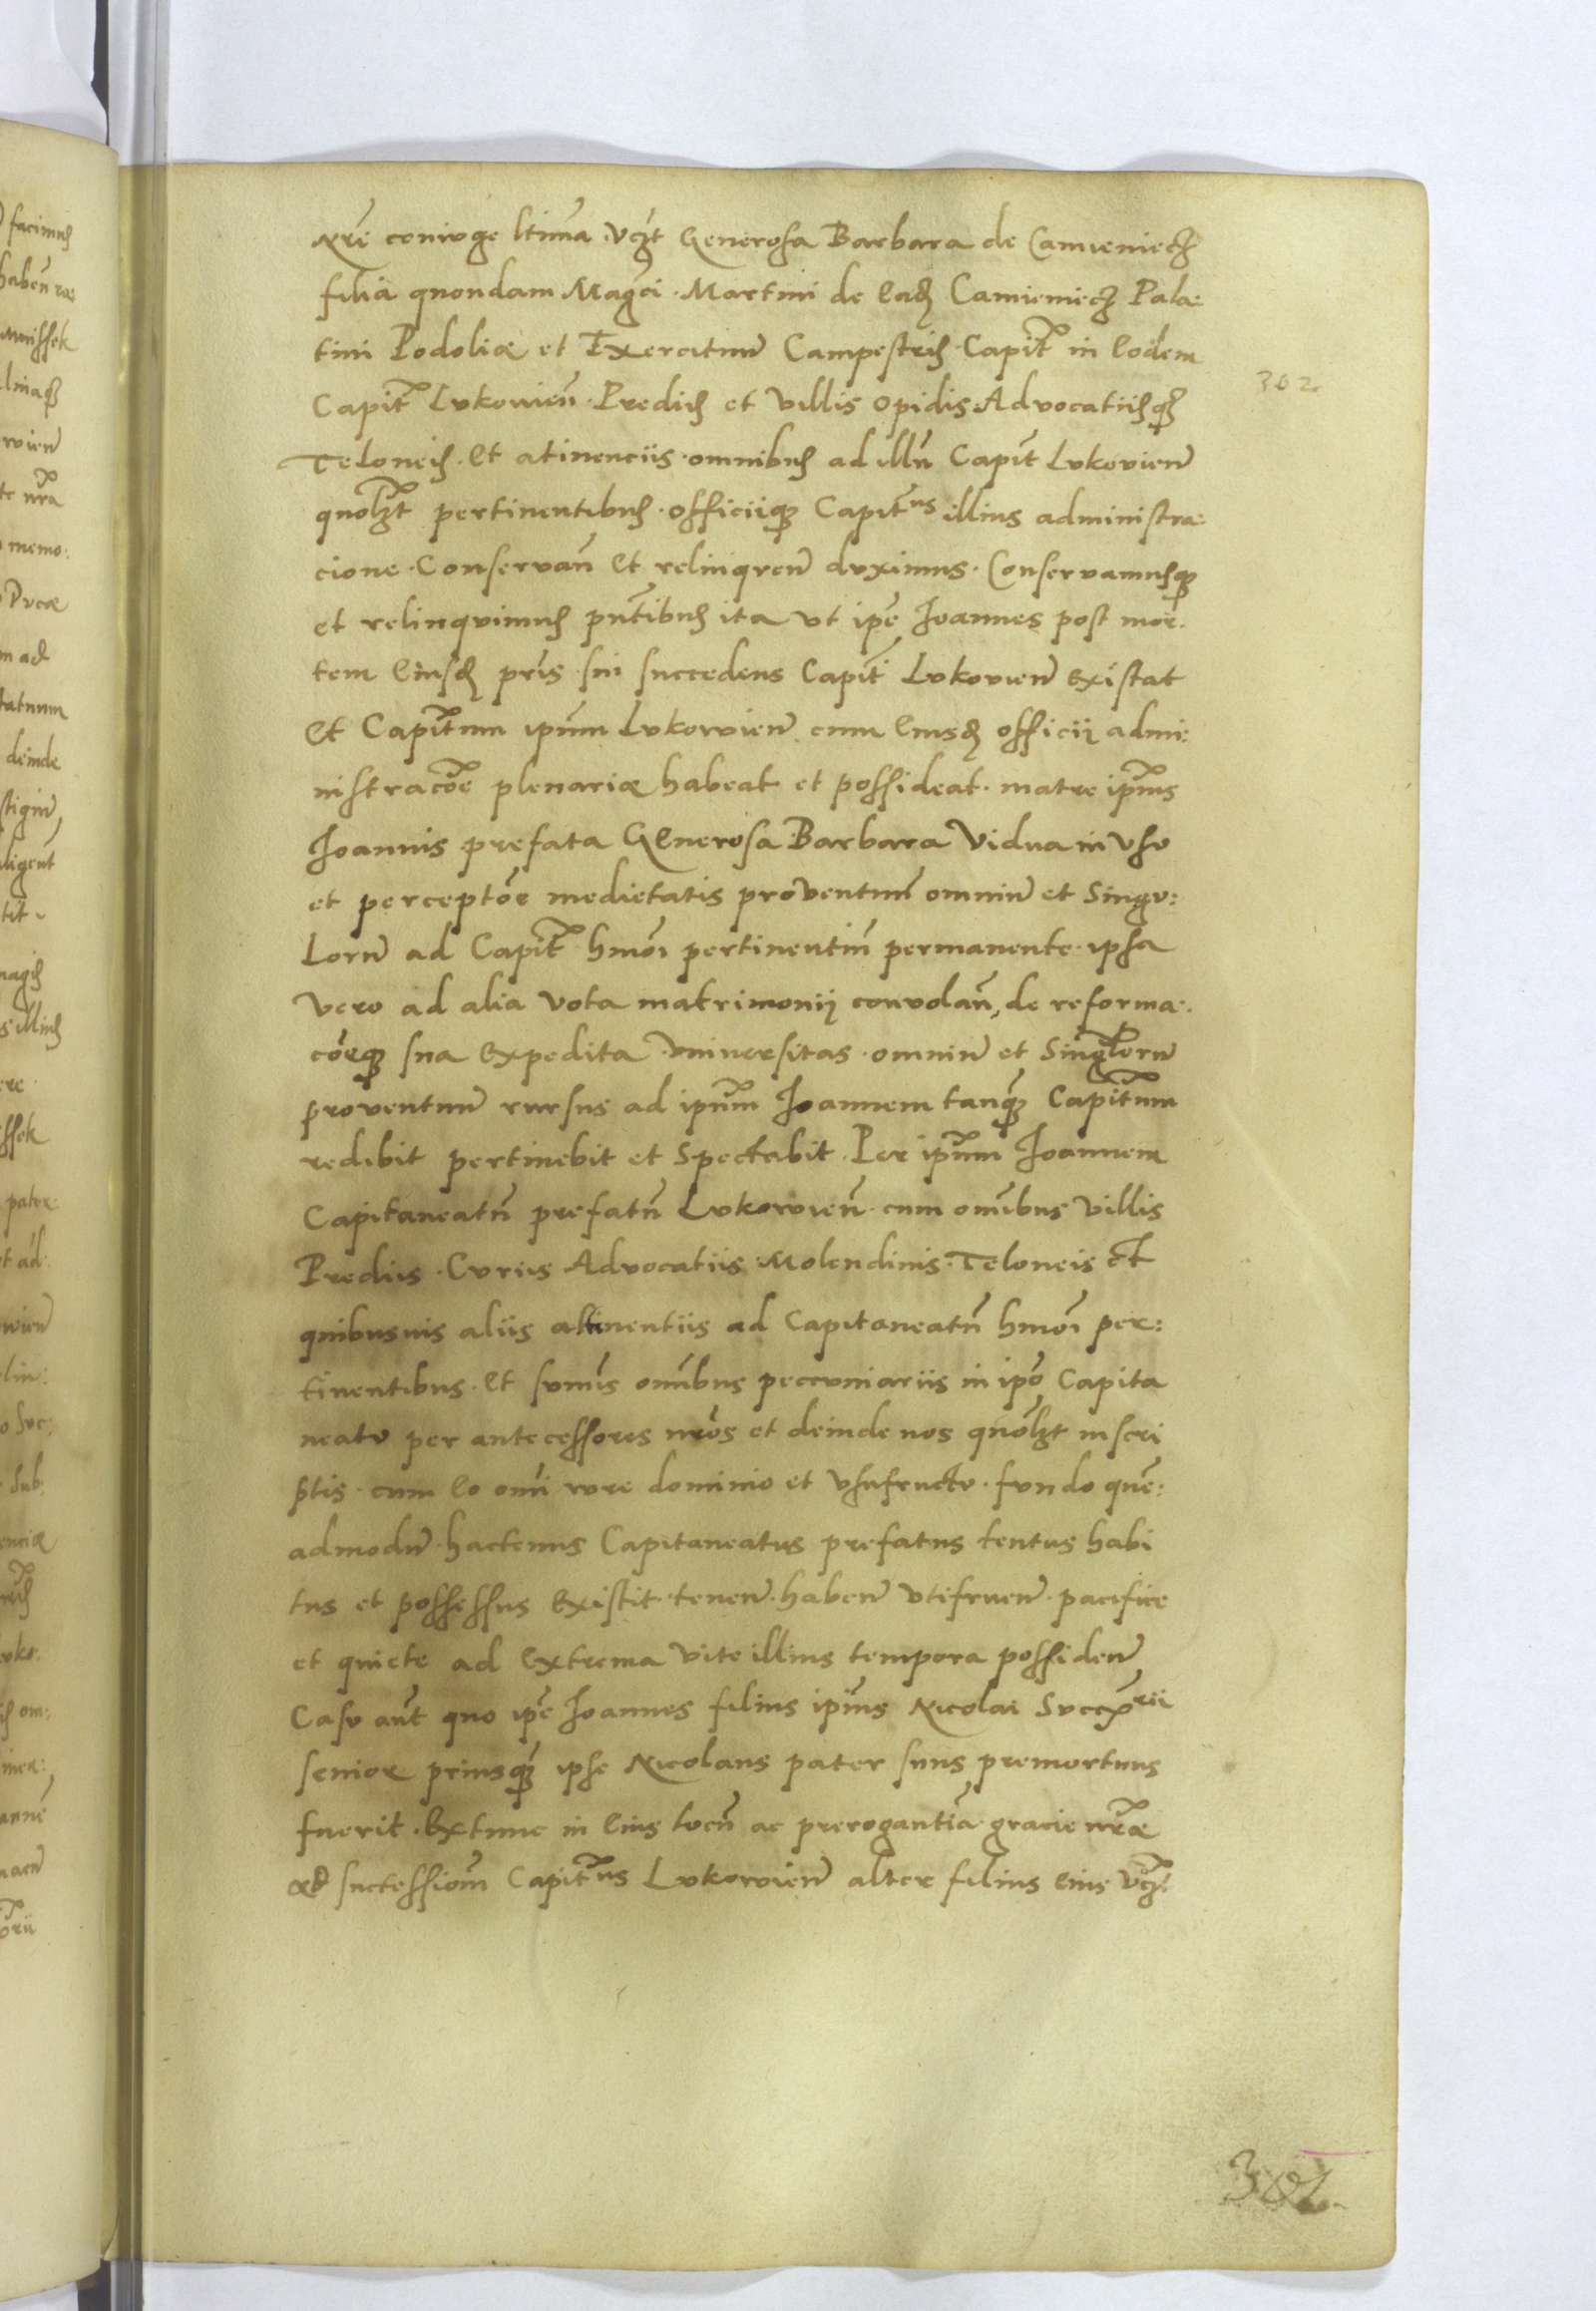 nr̃e coniuge ltima vcz̃t Generosa Barbara de Camieniecz
filia quondam Magci Martini de ead Camieniecz Pala:
tini Podoliae et Exercituum Campestris Capit in eodem
Capit Lukovien̄ Prediis et villis opidis Advocatiisq
Teloneis et atinenciis omnibus ad illū Capit̄ Lukovien̄
quolzt pertinentibus officiiq Capit̃us illius administra:
cione Conservan̄ et relinquen̄ duximus Conservamusq
et relinquimus pñtibus ita ut ip̃e Joannes post mor:
tem eiusd pr̃is sui succedens Capit̃ Lukovien̄ existat
et Capit̃um ip̃um Lukowien̄ cum eiusd officii admi:
nistracõe plenariae habeat et possideat matre ip̃ius
Joannis prefata Generosa Barbara Vidua in usu
et perceptõe medietatis proventuū omniū et singu:
lorū ad Capit̃ hmõi pertinentiū permanente ipsa
vero ad alia vota matrimonii convolan̄ de reforma:
cõeq sua expedita universitas omniū et singlorū
proventuū rursus ad ip̃um Joannem tanq̃ Capit̃um
redibit pertinebit et spectabit Per ip̃um Joannem
Capitaneatū prefatū Lukowien̄ cum om̃ibus villis
Prediis Curiis Advocatiis Molendinis Teloneis et
quibusuis aliis attinentiis ad Capitaneatū hmõi per:
tinentibus et sum̃is om̃ibus pecuniariis in ip̃o Capita
neatu per antecessores nr̃os et deinde nos quõlzt inscri
ptis cum eo om̃i iure dominio et usufructu fundo quẽ:
admodū hactenus Capitaneatus prefatus tentus habi
tus et possessus existit tenen̄ haben̄ utifruen̄ pacifice
et quiete ad extrema vite illius tempora possiden̄
Casu aũt quo ip̃e Joannes filius ip̃ius Nicolai
senior priusq̃ ipse Nicolaus pater suus premortuus
fuerit Extunc in eius locū ac prerogantiã gracie nr̃ae
ad successiom̃ Capit̃us Lukowien̄ alter filius eius vcz̃t
302
302